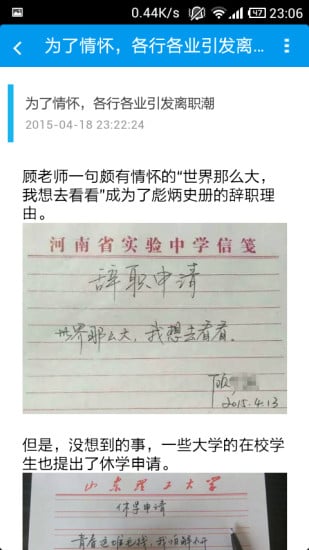 0.44K/s 47 23:06
为了情怀，各行各业引发离...
为了情怀，各行各业引发离职潮
2015-04-18 23:22:24
顾老师一句颇有情怀的“世界那么大，
我想去看看”成为了彪炳史册的辞职理
由。
河南省实验中学信笺
辞职申请
世界那么大，我想去看看。
顾
2015.4.13
但是，没想到的事，一些大学的在校学
生也提出了休学申请。
山东理工大学
休学申请